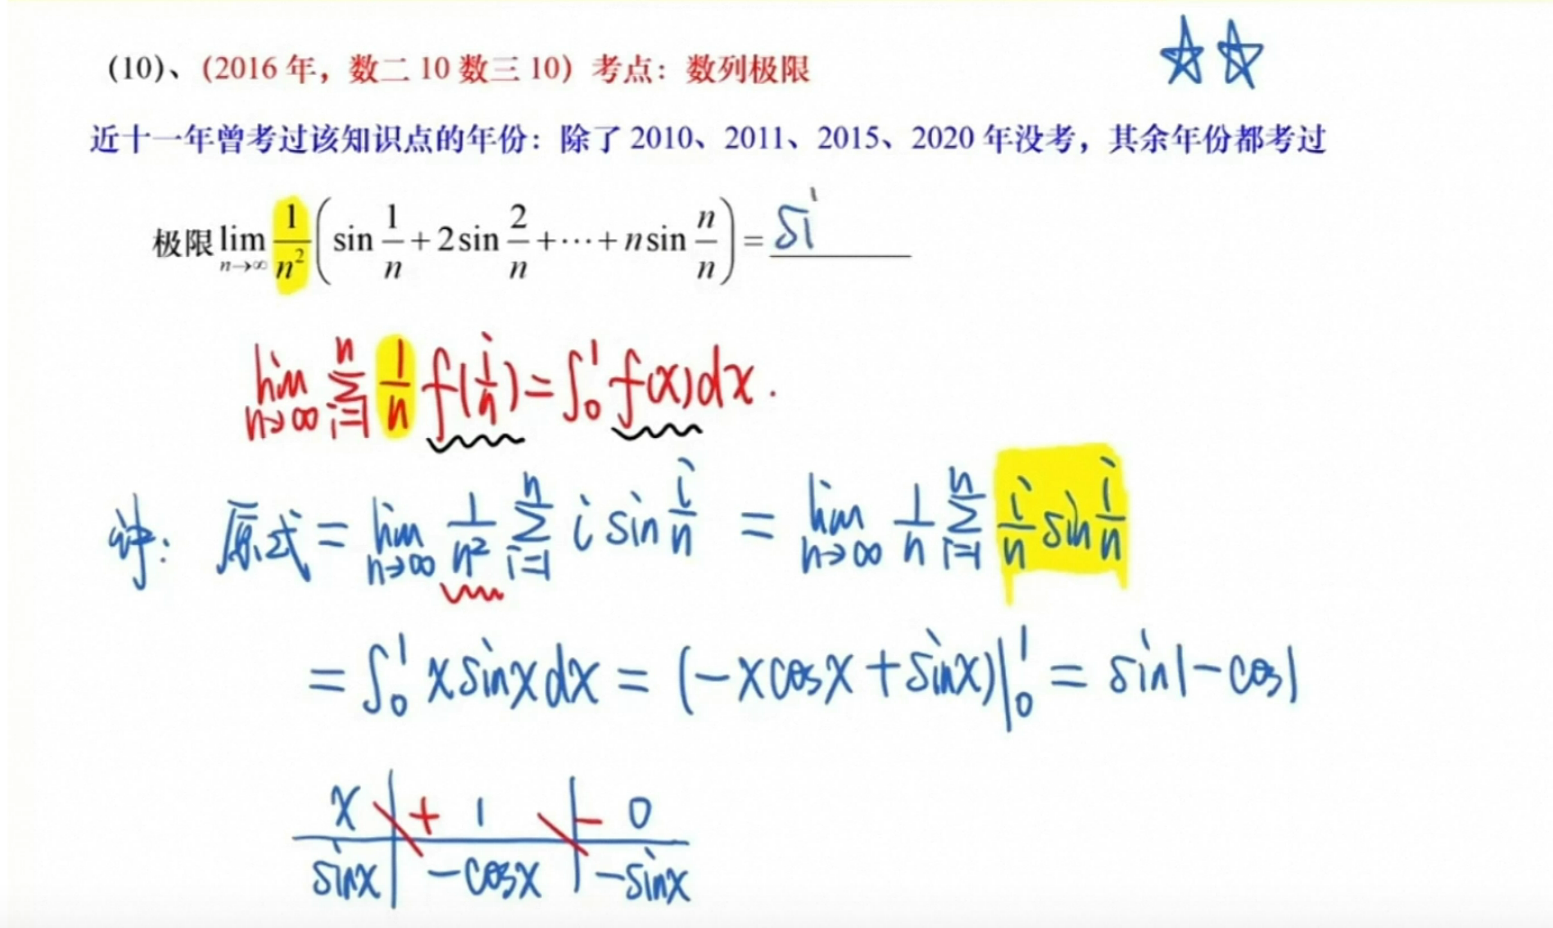 (10)、(2016 年，数二 10 数三 10) 考点：数列极限
近十一年曾考过该知识点的年份：除了 2010、2011、2015、2020 年没考，其余年份都考过
极限 lim n→∞ 1/n² (sin 1/n + 2 sin 2/n + ⋯ + n sin n/n) = si
lim n→∞ Σ i=1 n 1/n f(i/n) = ∫₀¹ f(x)dx.
解：原式 = lim n→∞ 1/n² Σ i=1 n i sin i/n = lim n→∞ 1/n Σ i=1 n i/n sin i/n
= ∫₀¹ x sinx dx = (-x cosx + sinx)|₀¹ = sin1 - cos1
x + 1 - 0
sinx -cosx -sinx